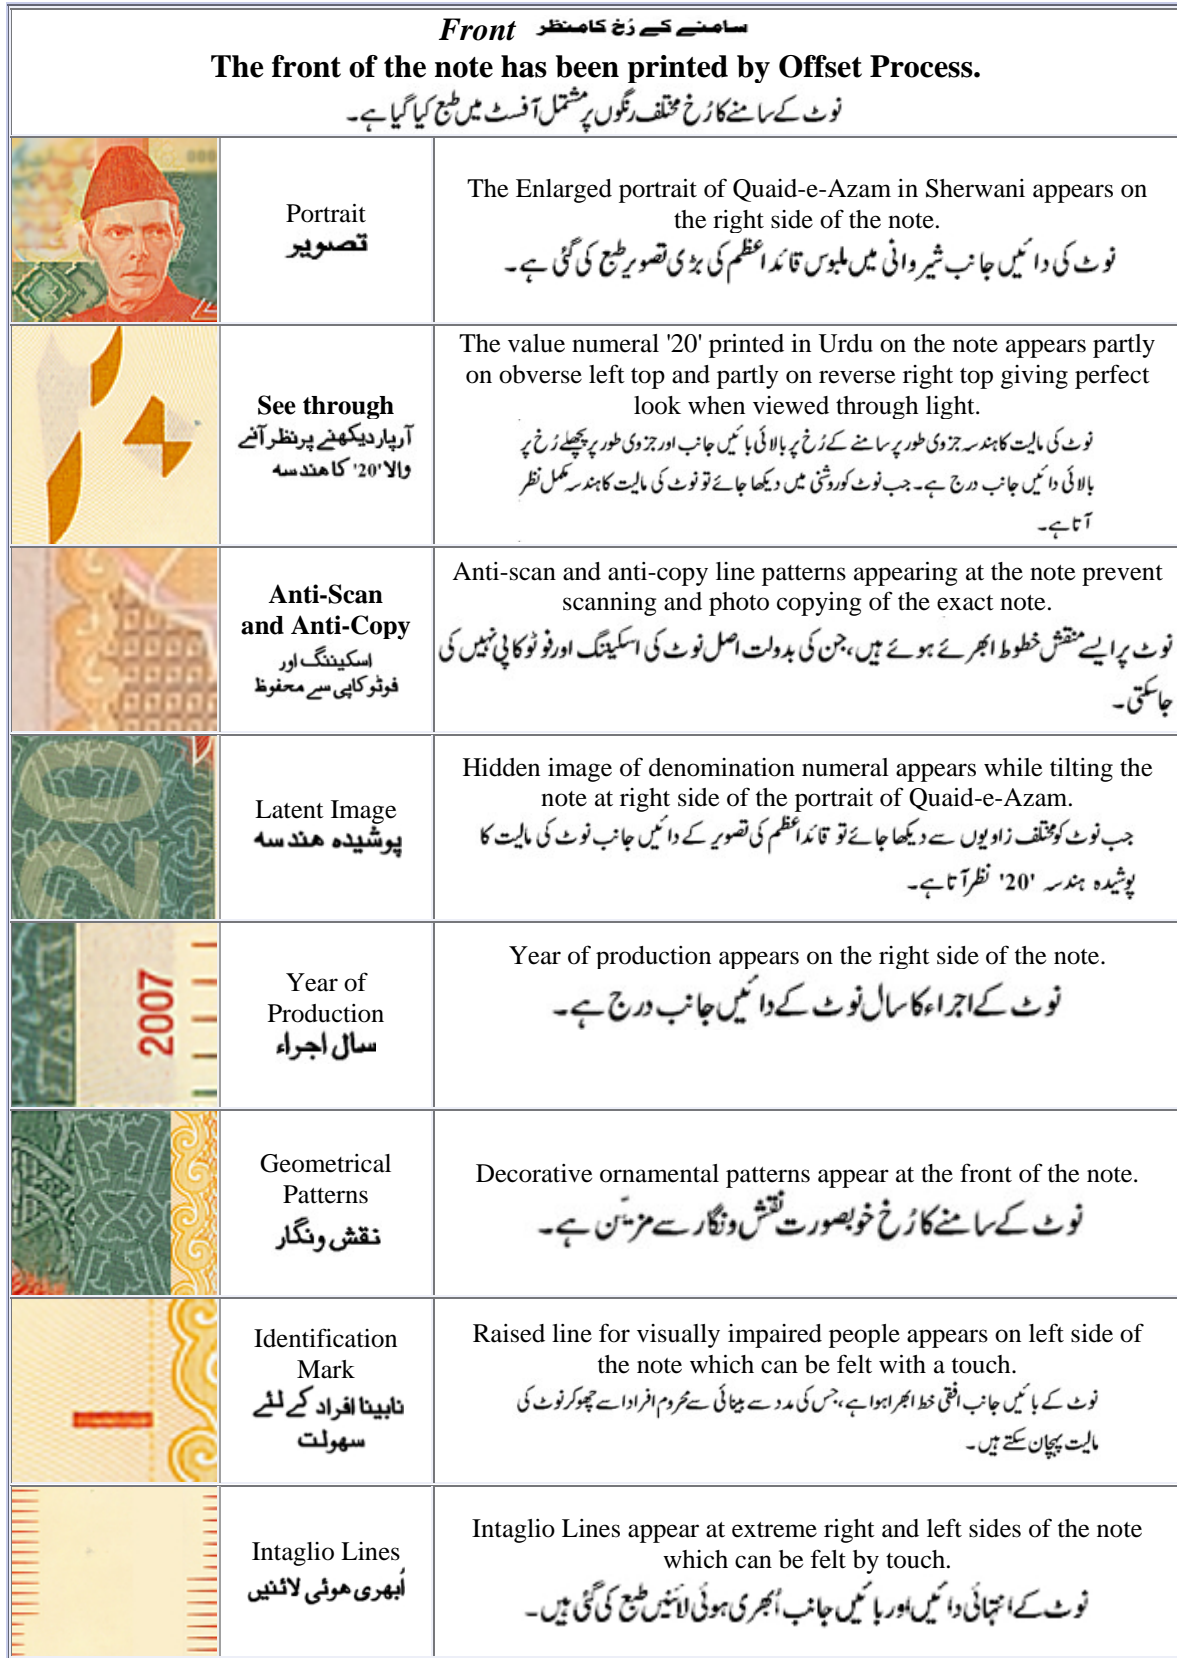 Front سامنے کے رُخ کا منظر
The front of the note has been printed by Offset Process.
نوٹ کے سامنے کا رُخ مختلف رنگوں پر مشتمل آفسٹ میں طبع کیا گیا ہے۔
000
Portrait
تصویر
The Enlarged portrait of Quaid-e-Azam in Sherwani appears on
the right side of the note.
نوٹ کی دائیں جانب شیروانی میں ملبوس قائد اعظم کی بڑی تصویر طبع کی گئی ہے۔
See through
آرپار دیکھنے پر نظر آنے
والا '20' کا ہندسہ
The value numeral '20' printed in Urdu on the note appears partly
on obverse left top and partly on reverse right top giving perfect
look when viewed through light.
نوٹ کی مالیت کا ہندسہ جزوی طور پر سامنے کے رُخ پر بالائی بائیں جانب اور جزوی طور پر پچھلے رُخ پر
بالائی دائیں جانب درج ہے۔ جب نوٹ کو روشنی میں دیکھا جائے تو نوٹ کی مالیت کا ہندسہ مکمل نظر
آتا ہے۔
Anti-Scan
and Anti-Copy
اسکیننگ اور
فوٹو کاپی سے محفوظ
Anti-scan and anti-copy line patterns appearing at the note prevent
scanning and photo copying of the exact note.
نوٹ پر ایسے منقش خطوط ابھرے ہوئے ہیں، جن کی بدولت اصل نوٹ کی اسکیننگ اور فوٹو کاپی نہیں کی
جاسکتی۔
20
Latent Image
پوشیدہ ہندسہ
Hidden image of denomination numeral appears while tilting the
note at right side of the portrait of Quaid-e-Azam.
جب نوٹ کو مختلف زاویوں سے دیکھا جائے تو قائد اعظم کی تصویر کے دائیں جانب نوٹ کی مالیت کا
پوشیدہ ہندسہ '20' نظر آتا ہے۔
2007
Year of
Production
سال اجراء
Year of production appears on the right side of the note.
نوٹ کے اجراء کا سال نوٹ کے دائیں جانب درج ہے۔
Geometrical
Patterns
نقش ونگار
Decorative ornamental patterns appear at the front of the note.
نوٹ کے سامنے کا رُخ خوبصورت نقش ونگار سے مزیّن ہے۔
Identification
Mark
نابینا افراد کے لئے
سہولت
Raised line for visually impaired people appears on left side of
the note which can be felt with a touch.
نوٹ کے بائیں جانب افقی خط ابھرا ہوا ہے، جس کی مدد سے بینائی سے محروم افراد اسے چھو کر نوٹ کی
مالیت پہچان سکتے ہیں۔
Intaglio Lines
اُبھری ہوئی لائنیں
Intaglio Lines appear at extreme right and left sides of the note
which can be felt by touch.
نوٹ کے انتہائی دائیں اور بائیں جانب اُبھری ہوئی لائنیں طبع کی گئی ہیں۔